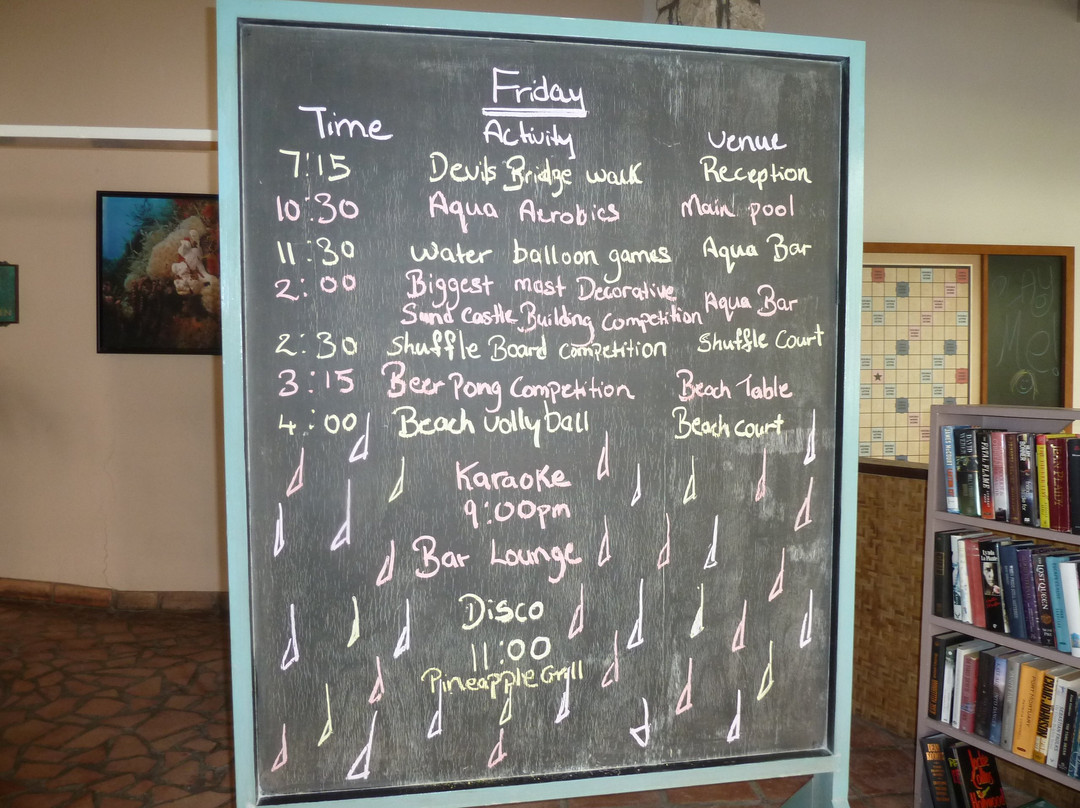 Friday
Time Activity Venue
7:15 Devils Bridge walk Reception
10:30 Aqua Aerobics Main pool
11:30 Water balloon games Aqua Bar
2:00 Biggest most Decorative Aqua Bar
Sand Castle Building Competition
2:30 Shuffle Board Competition Shuffle Court
3:15 Beer Pong Competition Beach Table
4:00 Beach vollyball Beach court
Karaoke
9:00pm
Bar Lounge
Disco
11:00
Pineapple Grill
FATAL FLAME
JEAN PLAIDY
Lynda La Plante
LOST QUEEN
CRAIG JOHNSON